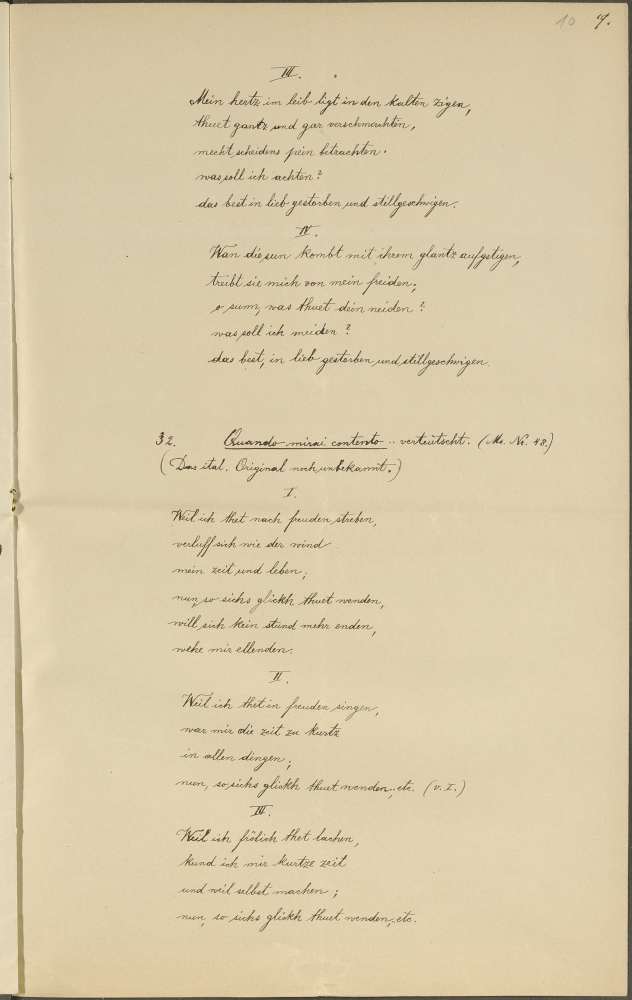 10 7.
III.
Mein hertz im leib ligt in den kalten zigen,
thuet gantz und gar verschmachten,
mecht scheidens pein betrachten.
was soll ich achten?
das best in lieb gestorben und stillgeschwigen.
IV.
Wan die sun kombt mit ihrem glantz aufgstigen,
treibt sie mich von mein freiden;
o sunn, was thuet dein neiden?
was soll ich meiden?
das best, in lieb gestorben und stillgeschwigen.
32. Quando mirai contento .. verteutscht. (Ms. Nr. 48.)
(Das ital. Original noch unbekannt.)
I.
Weil ich thet nach freuden streben,
verluff sich wie der wind
mein zeit und leben;
nun, so sichs glickh thuet wenden,
will sich kein stund mehr enden,
wehe mir ellenden.
II.
Weil ich thet in freuden singen,
war mir die zeit zu kurtz
in allen dingen;
nun, so sichs glickh thuet wenden, etc. (v. I.)
III.
Weil ich frölich thet lachen,
kund ich mir kurtze zeit
und weil selbst machen;
nun, so sichs glickh thuet wenden, etc.